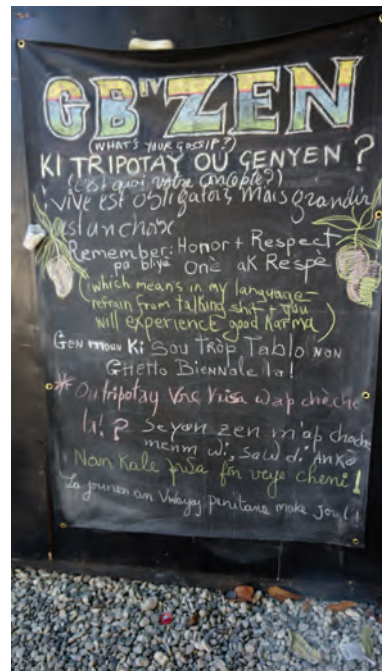 GB'TV ZEN
(WHAT'S YOUR GOSSIP?)
KI TRIPOTAY OU GENYEN ?
(c'est quoi votre concepte?)
Vivre est obligatoir Mais grandir
est un choix
Remember: Honor + Respect
pa bliye Onè ak Respè
(which means in my language
refrain from talking shit + you
will experience good Karma)
Gen moun Ki Sou Tròp Tablo nan
Ghetto Biennale la!
* Ou tripotay Vre w'ap chèche
la! ? Se yon zen m'ap chache
menm wi, saw di Ankò
Nan Kale pwa fin veye chemi!
La jounen an Vwayaj penitans make jou